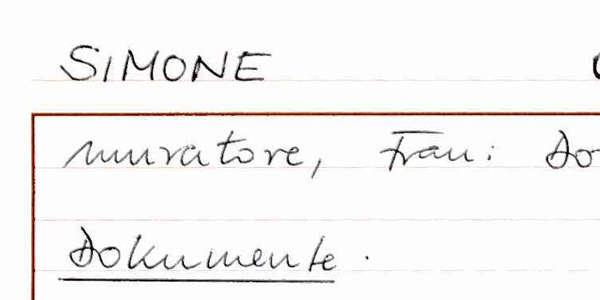 SIMONE
muratore, Frau: Do
Dokumente.